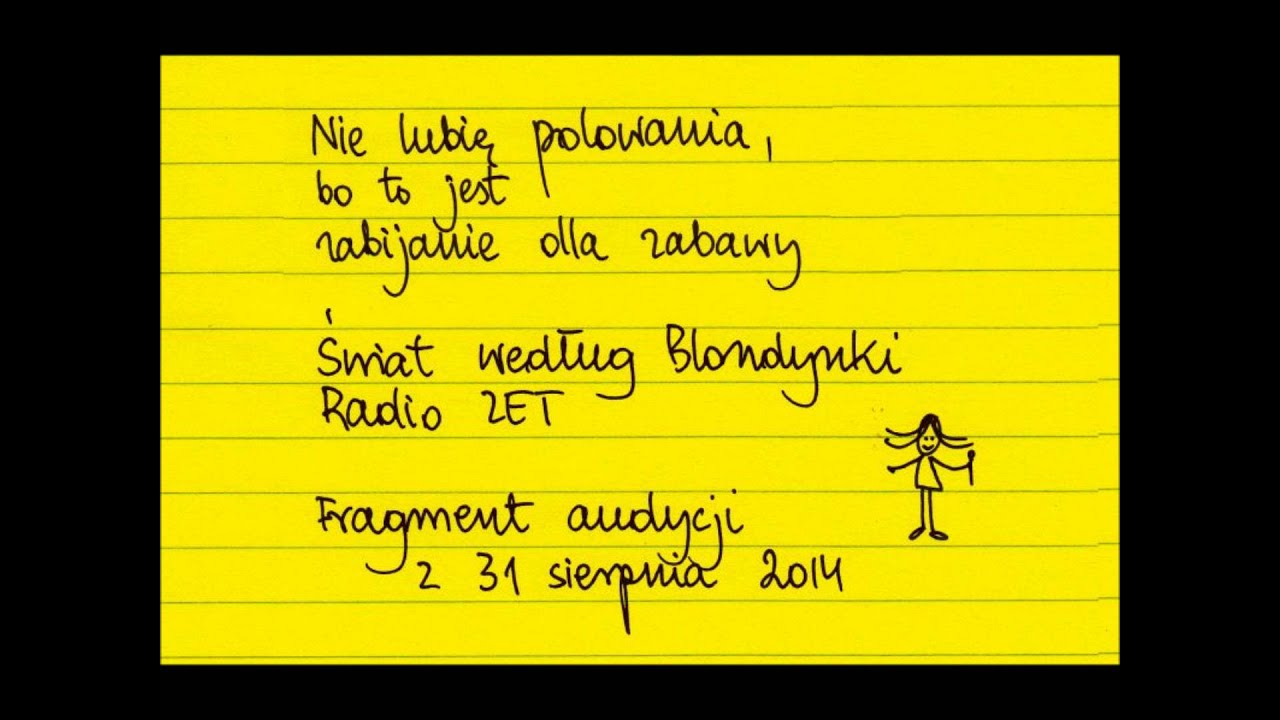 Nie lubię polowania,
bo to jest
zabijanie dla zabawy
Świat według Blondynki
Radio ZET
Fragment audycji
z 31 sierpnia 2014